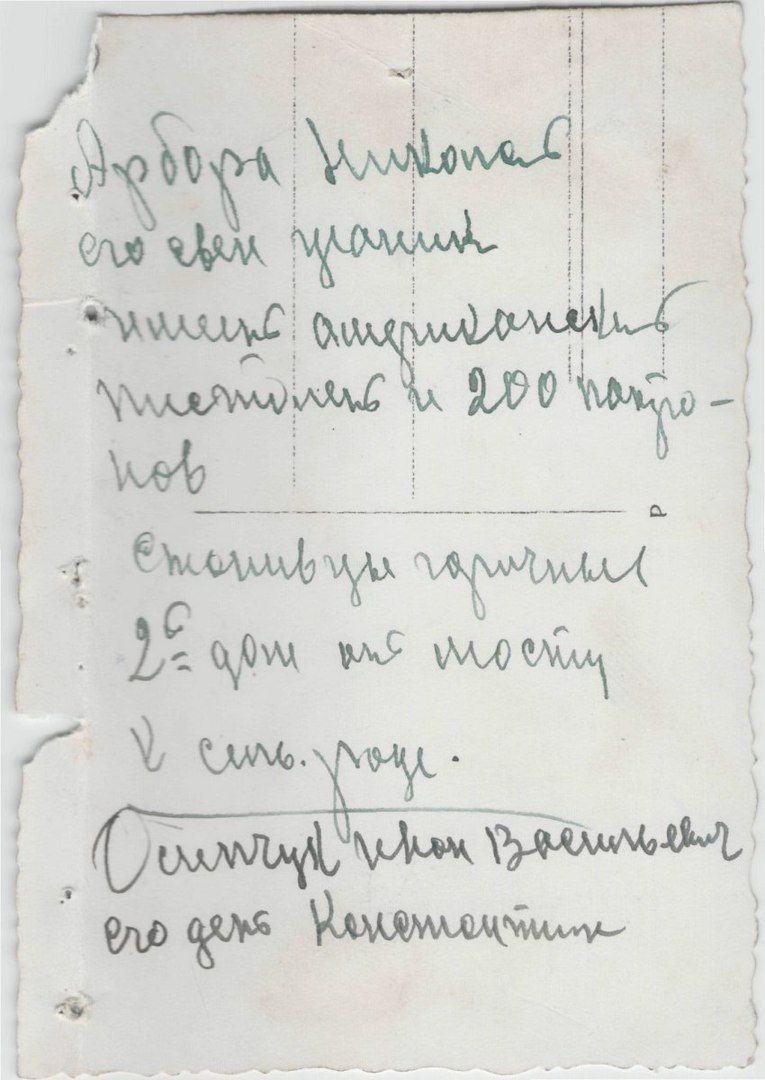 Арбора Николай
его свен
имеет американский
пистолет и 200 патро-
нов
Р
Станивцы горичный
2й дом от мосту
к сель. раде.
Осипчук Иван Васильевич
его день Константин